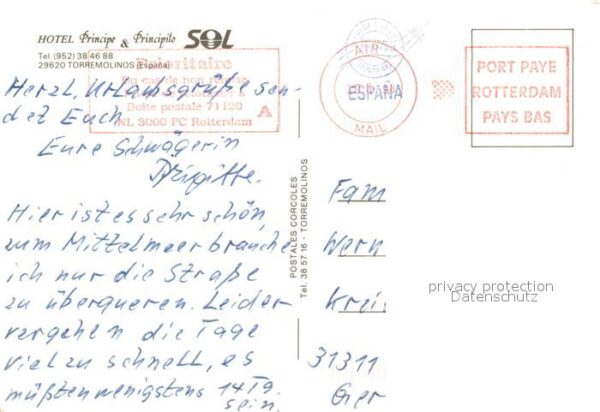 HOTEL Principe & Principito SOL
Tel (952) 38 46 88
29620 TORREMOLINOS (España)
Prioritaire
En cas de non remise
Boîte postale 71120
NL 3000 PC Rotterdam
A
AIR
ESPAÑA
MAIL
PORT PAYE
ROTTERDAM
PAYS BAS
Herzl. Urlaubsgrüße sen-
det Euch
Eure Schwägerin
Brigitte.
Hier ist es sehr schön,
zum Mittelmeer brauche
ich nur die Straße
zu überqueren. Leider
vergehen die Tage
viel zu schnell, es
müßten wenigstens 14 Tg.
sein.
POSTALES CORCOLES
Tel. 38 57 16 - TORREMOLINOS
Fam
Wern
Kreis
31311
Ger
privacy protection
Datenschutz